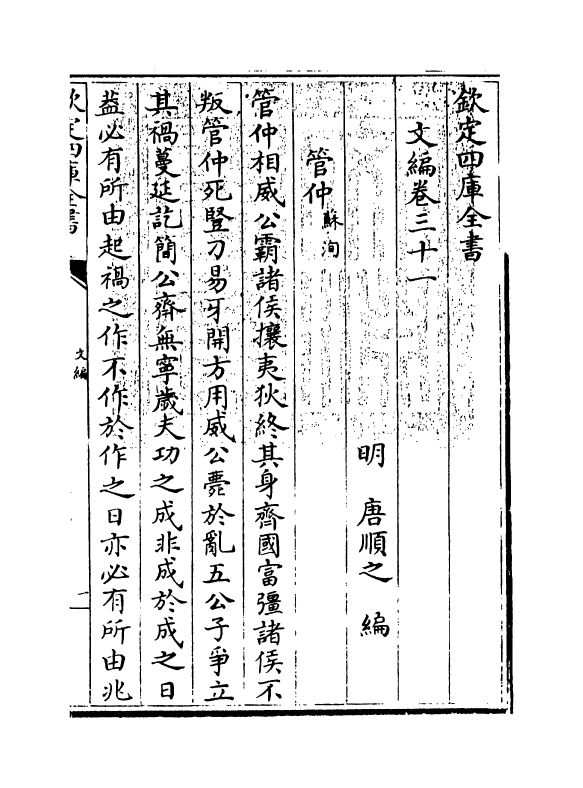 欽定四庫全書
文編卷三十一
明 唐順之 編
管仲 蘇洵
管仲相威公霸諸侯攘夷狄終其身齊國富彊諸侯不
叛管仲死豎刁易牙開方用威公薨於亂五公子爭立
其禍蔓延訖簡公齊無寧歲夫功之成非成於成之日
葢必有所由起禍之作不作於作之日亦必有所由兆
欽定四庫全書
文編
一